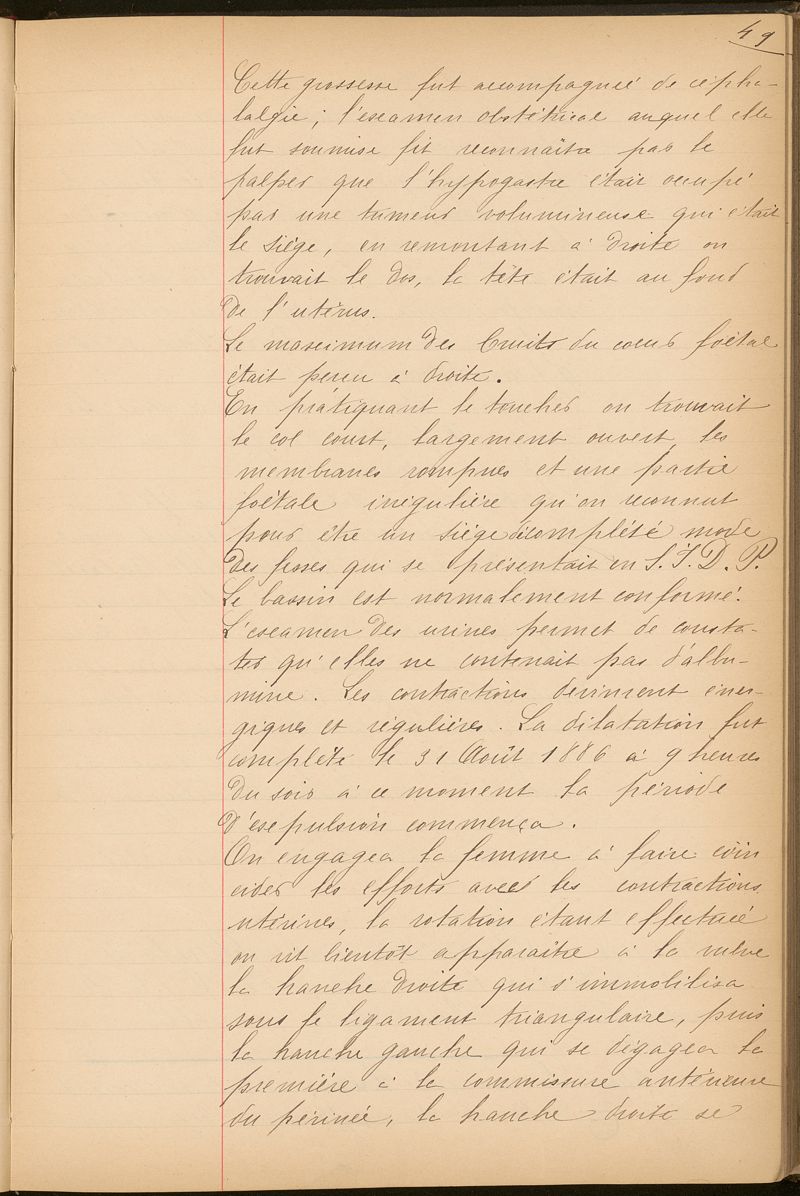 49
Cette grossesse fut accompagnée de cépha-
lalgie ; l'examen obstétrical auquel elle
fut soumise fit reconnaître par le
palper que l'hypogastre était occupé
par une tumeur volumineuse qui était
le siège, en remontant à droite on
trouvait le dos, la tête était au fond
de l'utérus.
Le maximum des bruits du coeur foetal
était perçu à droite.
En pratiquant le toucher on trouvait
le col court, largement ouvert, les
membranes rompues et une partie
foétale irrégulière qu'on reconnut
pour être un siège décomplété mode
des fesses qui se présentait en S. I. D. P.
Le bassin est normalement conformé.
L'examen des urines permet de consta-
ter qu'elles ne contenait pas d'albu-
mine. Les contractions devinrent éner-
giques et régulières. La dilatation fut
complète le 31 Août 1886 à 9 heures
du soir à ce moment la période
d'expulsion commença.
On engagea la femme à faire coïn
cider les efforts avec les contractions
utérines, la rotation étant effectuée
on vit bientôt apparaître à la vulve
la hanche droite qui s'immobilisa
sous le ligament triangulaire, puis
la hanche gauche qui se dégagea la
première à la commissure antérieure
du périnée, la hanche droite se